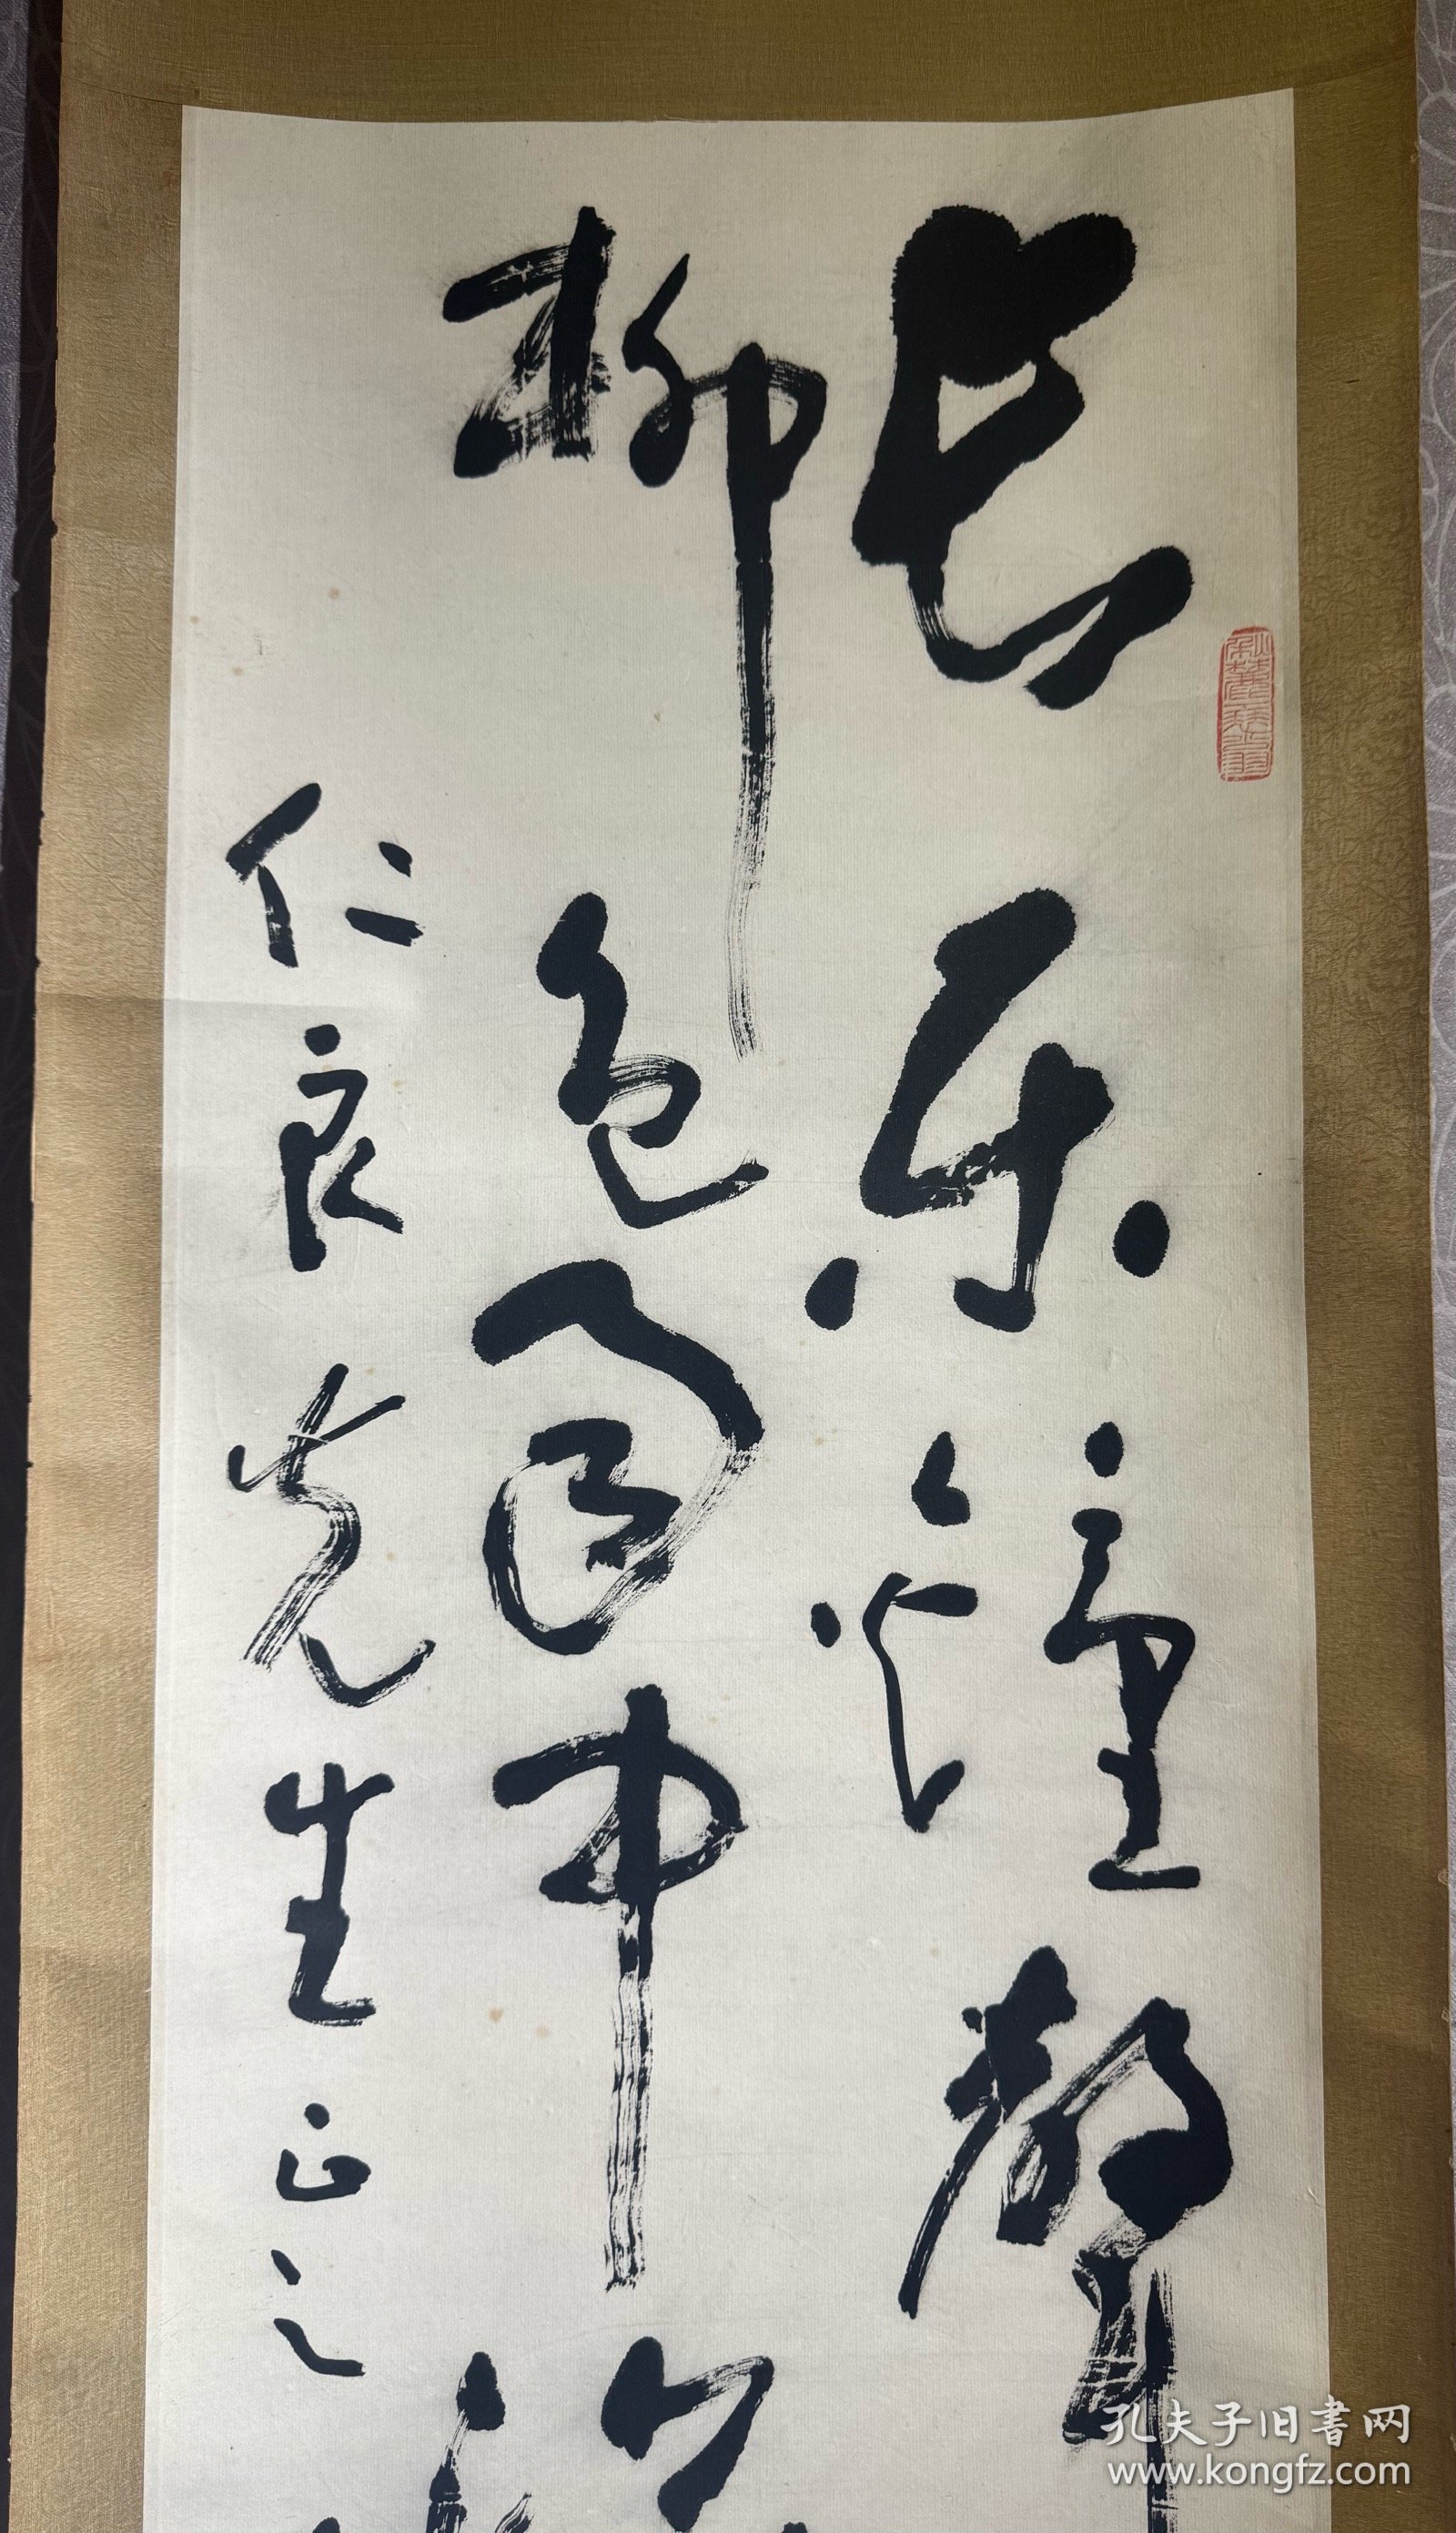 长乐钟声
柳色雨中
仁良先生正之
孔夫子旧书网
www.kongfz.com